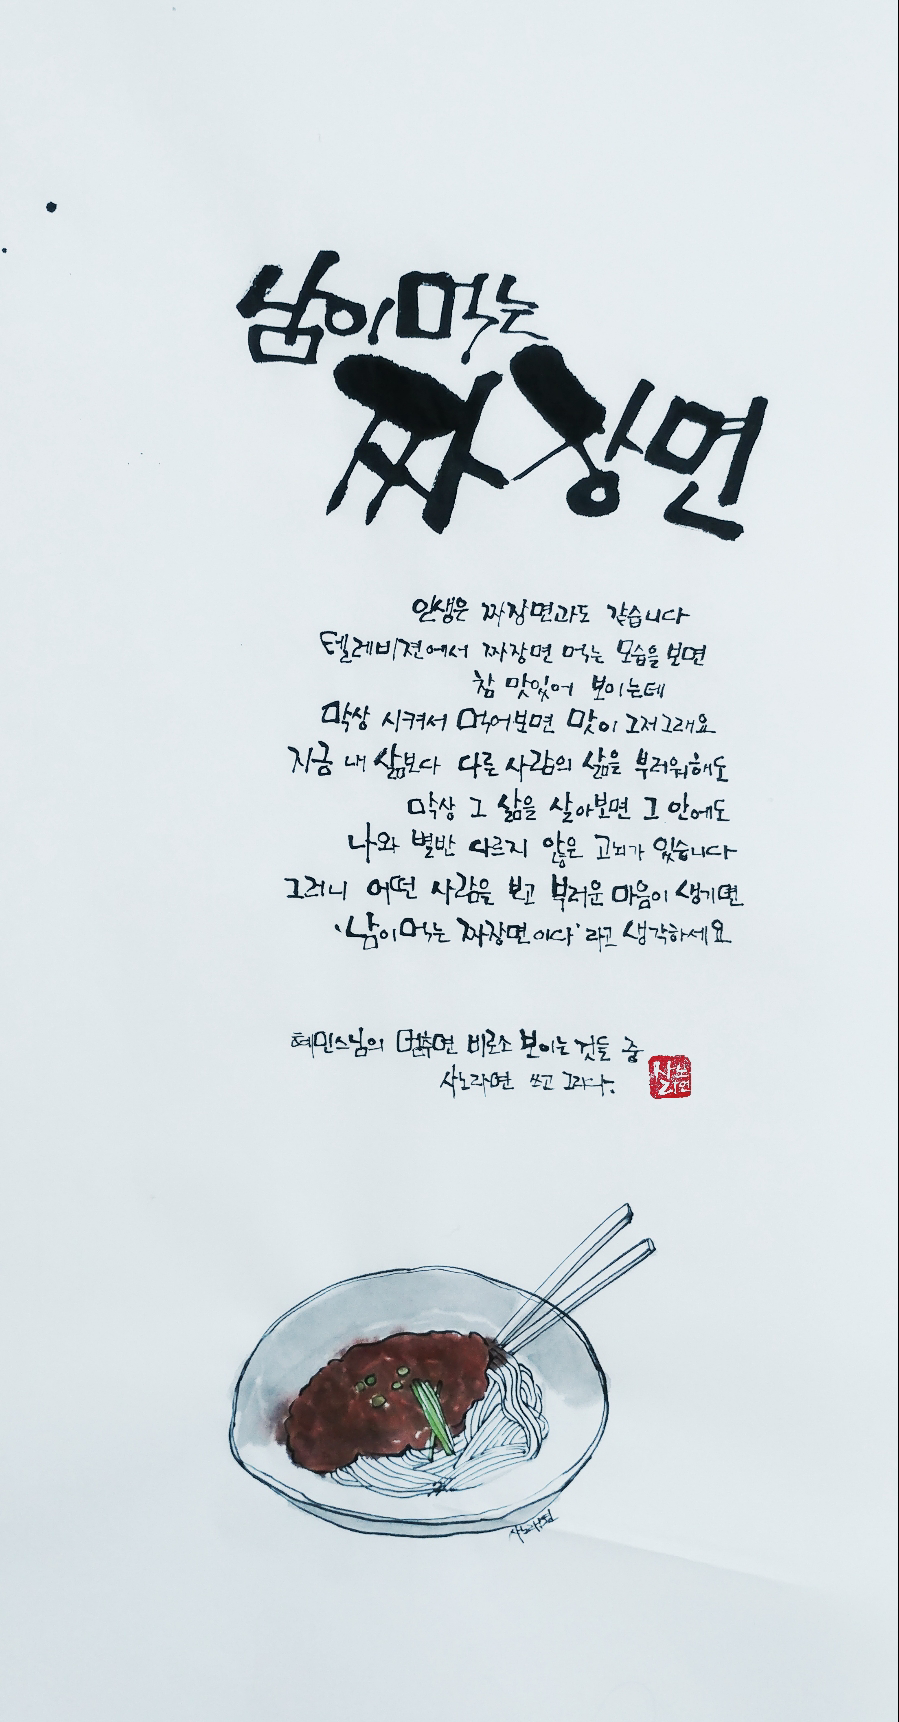 남이 먹는
짜장면
인생은 짜장면과도 같습니다
텔레비젼에서 짜장면 먹는 모습을 보면
참 맛있어 보이는데
막상 시켜서 먹어보면 맛이 그저그래요
지금 내 삶보다 다른 사람의 삶을 부러워해도
막상 그 삶을 살아보면 그 안에도
나와 별반 다르지 않은 고뇌가 있습니다
그러니 어떤 사람을 보고 부러운 마음이 생기면
'남이 먹는 짜장면이다' 라고 생각하세요
혜민스님의 멈추면 비로소 보이는 것들 중
사노라면 쓰고 그리다.
사노라면
사노라면